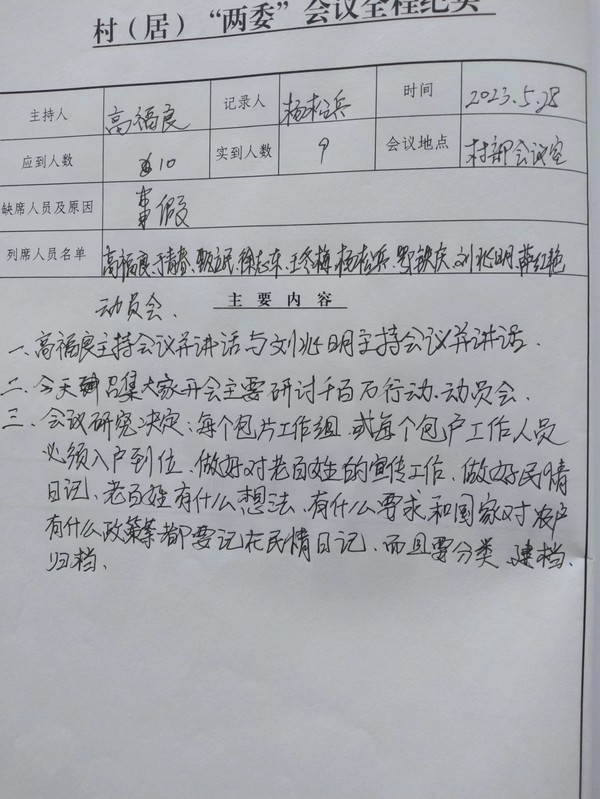 村（居）“两委”会议全程纪实
主持人 高福良 记录人 杨松兵 时间 2023.5.28
应到人数 10 实到人数 9 会议地点 村部会议室
缺席人员及原因 事假
列席人员名单 高福良、于青春、甄立民、徐志东、王冬梅、杨松兵、鄂铁庆、刘兆明、薛红艳
动员会. 主要内容
一、高福良主持会议并讲话与刘兆明主持会议并讲话.
二、今天召集大家开会主要研讨千百万行动、动员会.
三、会议研究决定：每个包片工作组、或每个包户工作人员
必须入户到位、做好对老百姓的宣传工作、做好民情
日记、老百姓有什么想法、有什么要求和国家对农户
有什么政策等都要记在民情日记、而且要分类、建档、
归档、